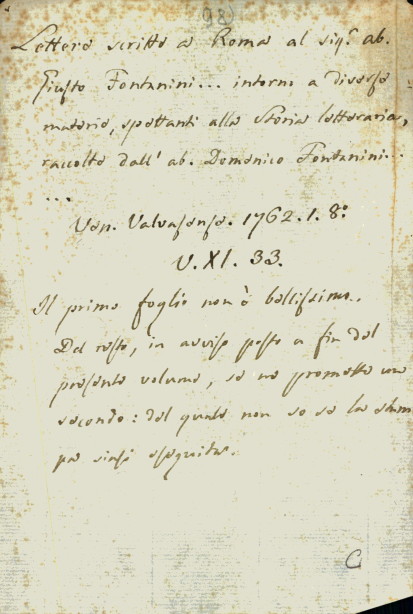 98)
Lettere scritte a Roma al sig.r ab.
Giusto Fontanini... intorno a diverse
materie, spettanti alla Storia letteraria,
raccolte dall' ab. Domenico Fontanini...
...
Ven. Valvasense. 1762. 1. 8:
V. XI. 33.
Il primo foglio non è bellissimo.
Del resto, in avviso posto a fin del
presente volume, se ne promette un
secondo: del quale non so se la stam
pa siasi eseguita.
C